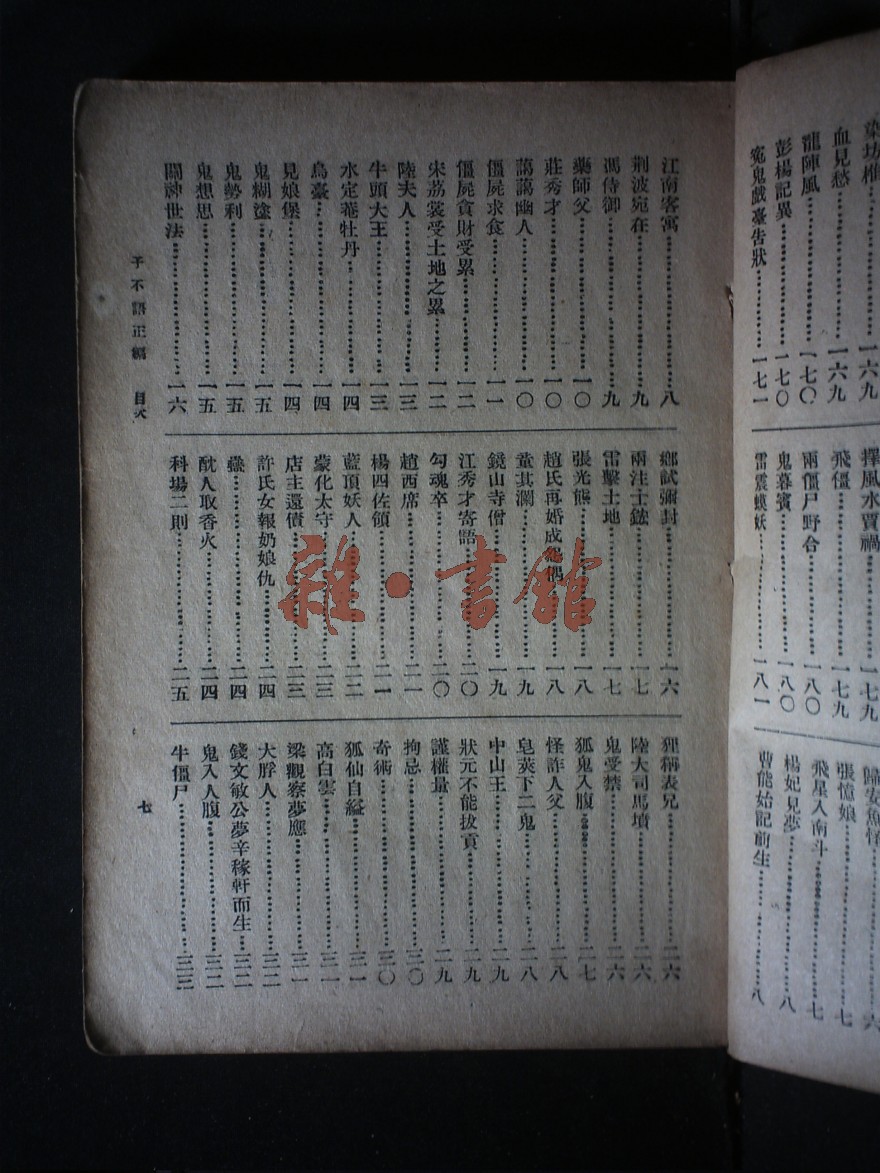 染坊椎……一六九
血見愁……一六九
龍陣風……一七〇
彭楊記異……一七〇
冤鬼戲臺告狀……一七一
擇風水賈禍……一七九
飛僵……一七九
兩僵尸野合……一八〇
鬼幕賓……一八〇
雷震蟆妖……一八一
歸安魚怪……六
張憶娘……七
飛星入南斗……七
楊妃見夢……八
曹能始記前生……八
江南客寓……八
荆波宛在……九
馮侍御……九
藥師父……一〇
莊秀才……一〇
藹藹幽人……一〇
僵屍求食……一一
僵屍貪財受累……一二
宋荔裳受土地之累……一二
陸夫人……一三
牛頭大王……一三
水定菴牡丹……一四
烏臺……一四
見娘堡……一四
鬼糊塗……一五
鬼勢利……一五
鬼想思……一五
鬭神世法……一六
鄉試彌封……一六
兩汪士鋐……一七
雷擊土地……一七
張光熊……一八
趙氏再婚成怨偶……一八
童其瀾……一九
鏡山寺僧……一九
江秀才寄語……二〇
勾魂卒……二〇
趙西席……二一
楊四佐領……二一
藍頂妖人……二二
蒙化太守……二三
店主還債……二三
許氏女報奶娘仇……二四
蠱……二四
酖人取香火……二四
科場二則……二五
狸稱表兄……二六
陸大司馬墳……二六
鬼受禁……二六
狐鬼入腹……二七
怪詐人父……二八
皂莢下二鬼……二八
中山王……二九
狀元不能拔貢……二九
謹權量……二九
拘忌……三〇
奇術……三〇
狐仙自縊……三一
高白雲……三一
梁觀察夢應……三一
大胖人……三二
錢文敏公夢辛稼軒而生……三二
鬼入人腹……三二
牛僵尸……三三
子不語正編　目次
七
雜·書館